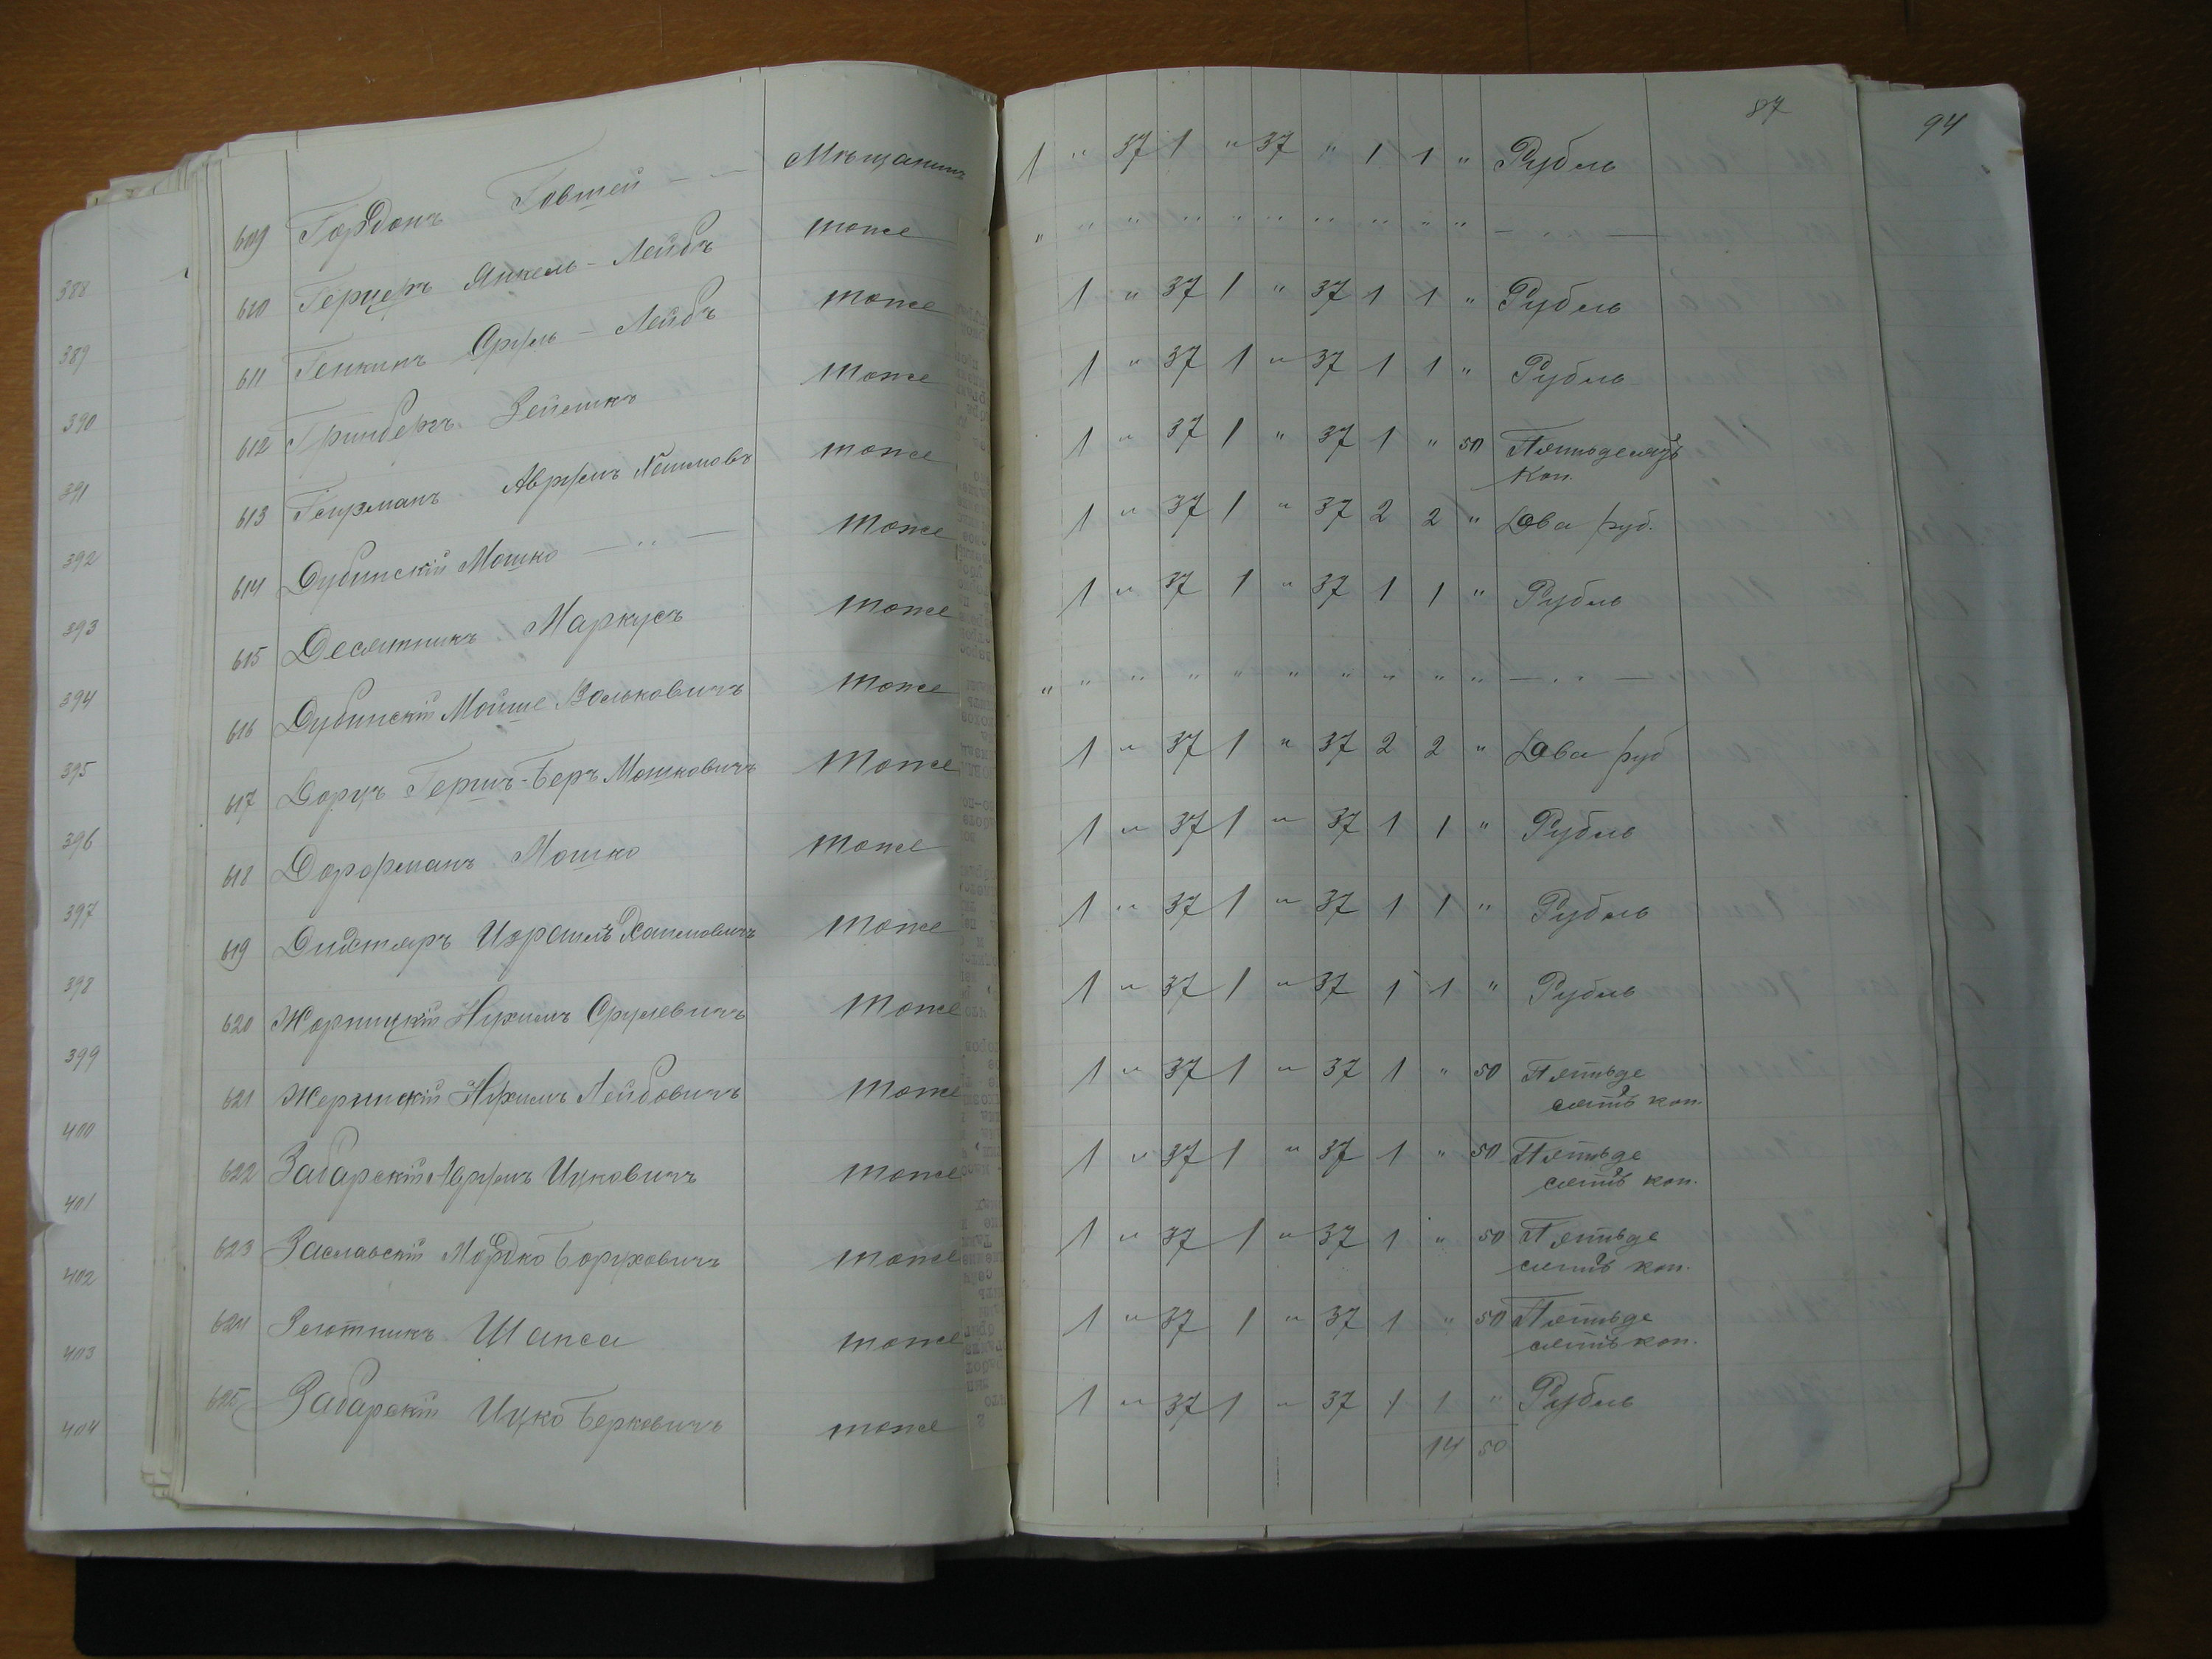 87
94
609 Гордонъ Говшей — — Мѣщанинъ 1 " 37 1 " 37 " 1 1 " Рубль
610 Герцеръ Янкель - Лейбъ тоже " " " " " " " " " " — " —
611 Генкинъ Сруль — Лейбъ тоже 1 " 37 1 " 37 1 1 " Рубль
612 Гринбергъ Зейликъ тоже 1 " 37 1 " 37 1 1 " Рубль
613 Гейзманъ Аврумъ тоже 1 " 37 1 " 37 1 " 50 Пятьдесятъ
коп.
614 Дубинскій Мошко — " — тоже 1 " 37 1 " 37 2 2 " Два руб.
615 Десятникъ Маркусъ тоже 1 " 37 1 " 37 1 1 " Рубль
616 Дубинскій Мойше Вольковичъ тоже " " " " " " " " " " — " —
617 Дорцъ Гершъ-Беръ Мошковичъ тоже 1 " 37 1 " 37 2 2 " Два руб
618 Дорфманъ Мошко тоже 1 " 37 1 " 37 1 1 " Рубль
619 Израиль Хаимовичъ тоже 1 " 37 1 " 37 1 1 " Рубль
620 Жорницкій Нухимъ Срулевичъ тоже 1 " 37 1 " 37 1 1 " Рубль
621 Нухимъ Лейбовичъ тоже 1 " 37 1 " 37 1 " 50 Пятьде
сятъ коп.
622 Забарскій Аврумъ Ицковичъ тоже 1 " 37 1 " 37 1 " 50 Пятьде
сятъ коп.
623 Заславскій Мордко Боруховичъ тоже 1 " 37 1 " 37 1 " 50 Пятьде
сятъ коп.
624 Золотникъ Шапса тоже 1 " 37 1 " 37 1 " 50 Пятьде
сятъ коп.
625 Забарскій Ицко Берковичъ тоже 1 " 37 1 " 37 1 1 " Рубль
14 50
388
389
390
391
392
393
394
395
396
397
398
399
400
401
402
403
404